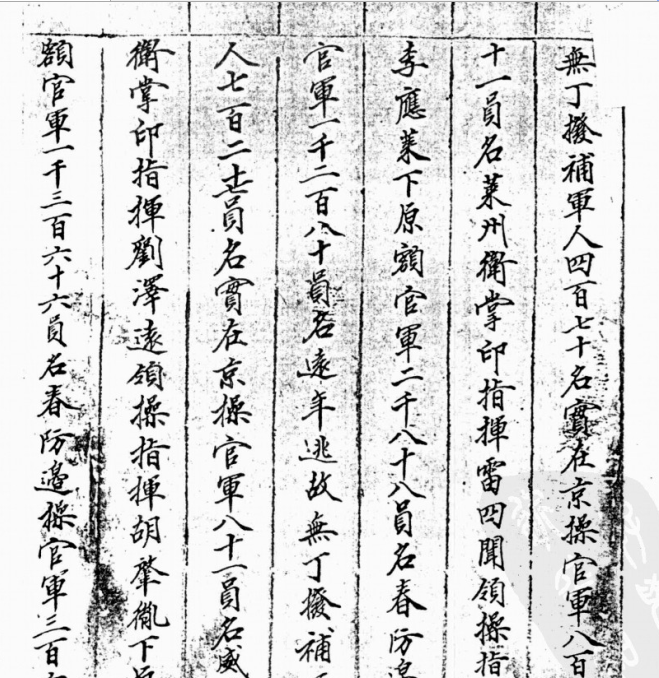 無丁撥補軍人四百七十名實在京操官軍八百
十一員名萊州衛掌印指揮雷四聞領操指
李應萊下原額官軍二千八十八員名春防邊
官軍一千二百八十員名遠年逃故無丁撥補
人七百二十七員名實在京操官軍八十一員名威
衛掌印指揮劉澤遠領操指揮胡肇胤下原
額官軍一千三百六十六員名春防邊操官軍三百